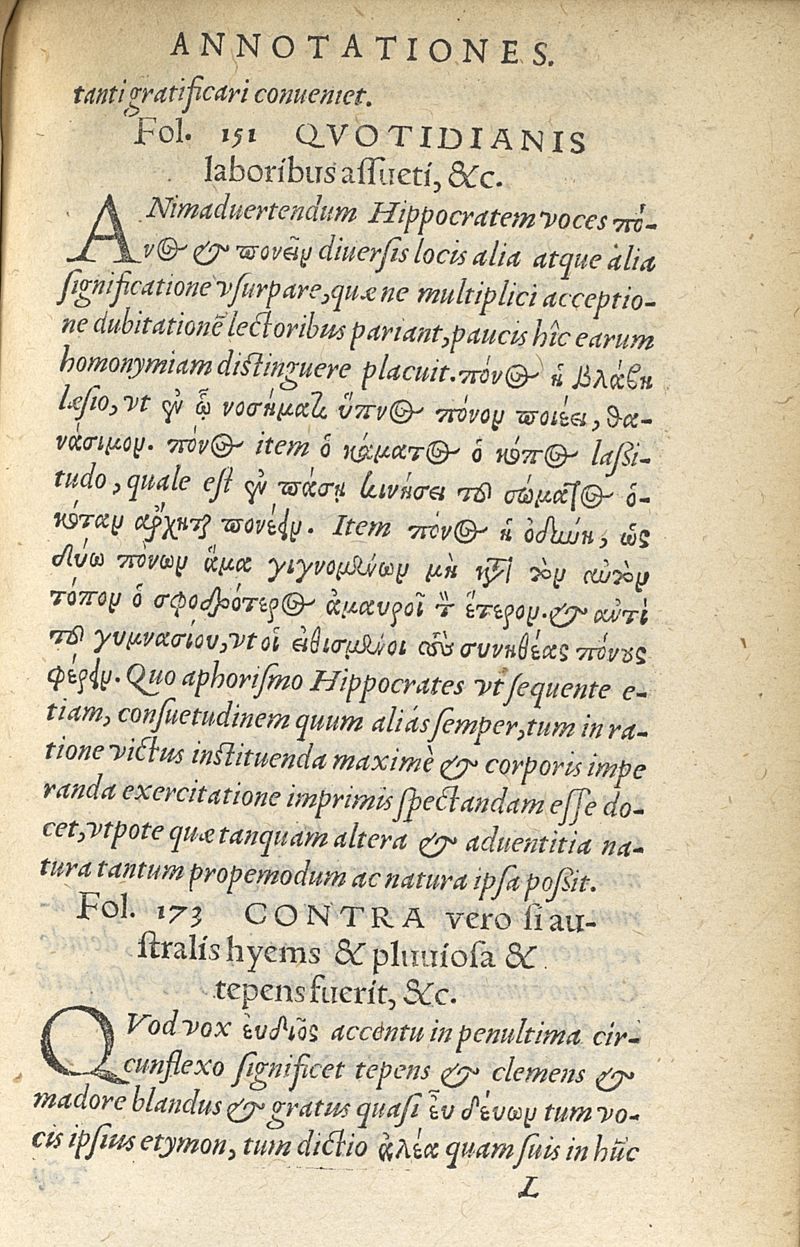 ANNOTATIONES.
tanti gratificari conueniet.
Fol. 151 QVOTIDIANIS
laboribus assueti, &c.
ANimaduertendum Hippocratem voces πό-
νος & πονεῖν diuersis locis alia atque alia
significatione vsurpare, quæ ne multiplici acceptio-
ne dubitationē lectoribus pariant, paucis hîc earum
homonymiam distinguere placuit. πόνος ἡ βλάβη
læsio, vt ἐν ᾧ νοσήματι ὕπνος πόνον ποιέει, θα-
νάσιμον. πόνος item ὁ κάματος ὁ κόπος lassi-
tudo, quale est ἐν πάσῃ κινήσει τοῦ σώματος ὁ-
κόταν ἄρχηται πονέειν. Item πόνος ἡ ὀδύνη, ὡς
δύω πόνων ἅμα γιγνομένων μὴ κατὰ τὸν αὐτὸν
τόπον ὁ σφοδρότερος ἀμαυροῖ τὸν ἕτερον. & αὐτὶ
τοῦ γυμνασίου, vt οἱ εἰθισμένοι τοὺς συνηθέας πόνους
φέρειν. Quo aphorismo Hippocrates vt sequente e-
tiam, consuetudinem quum aliás semper, tum in ra-
tione victus instituenda maximè & corporis impe
randa exercitatione imprimis spectandam esse do-
cet, vtpote quæ tanquam altera & aduentitia na-
tura tantum propemodum ac natura ipsa possit.
Fol. 173 CONTRA vero si au-
stralis hyems & pluuiosa &
tepens fuerit, &c.
QVod vox εὐδιος accentu in penultima cir-
cunflexo significet tepens & clemens &
madore blandus & gratus quasi εὖ δεύων tum vo-
cis ipsius etymon, tum dictio ἀλέα quam suis in hūc
L